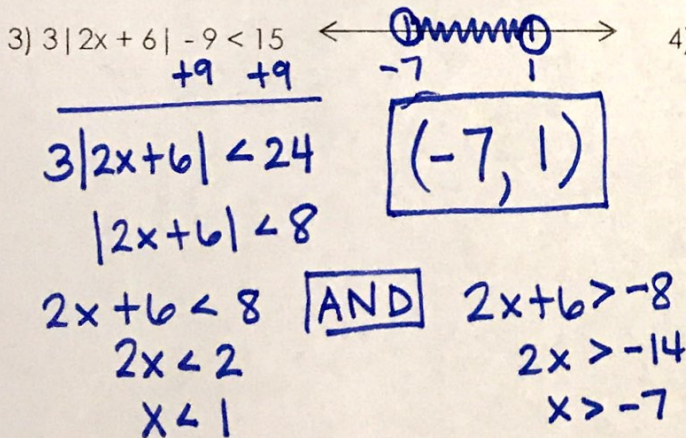 3) 3|2x + 6| - 9 < 15
+9 +9
-7 1
3|2x+6| < 24
(-7, 1)
|2x+6| < 8
2x+6 < 8 AND 2x+6 > -8
2x < 2 2x > -14
x < 1 x > -7
4)